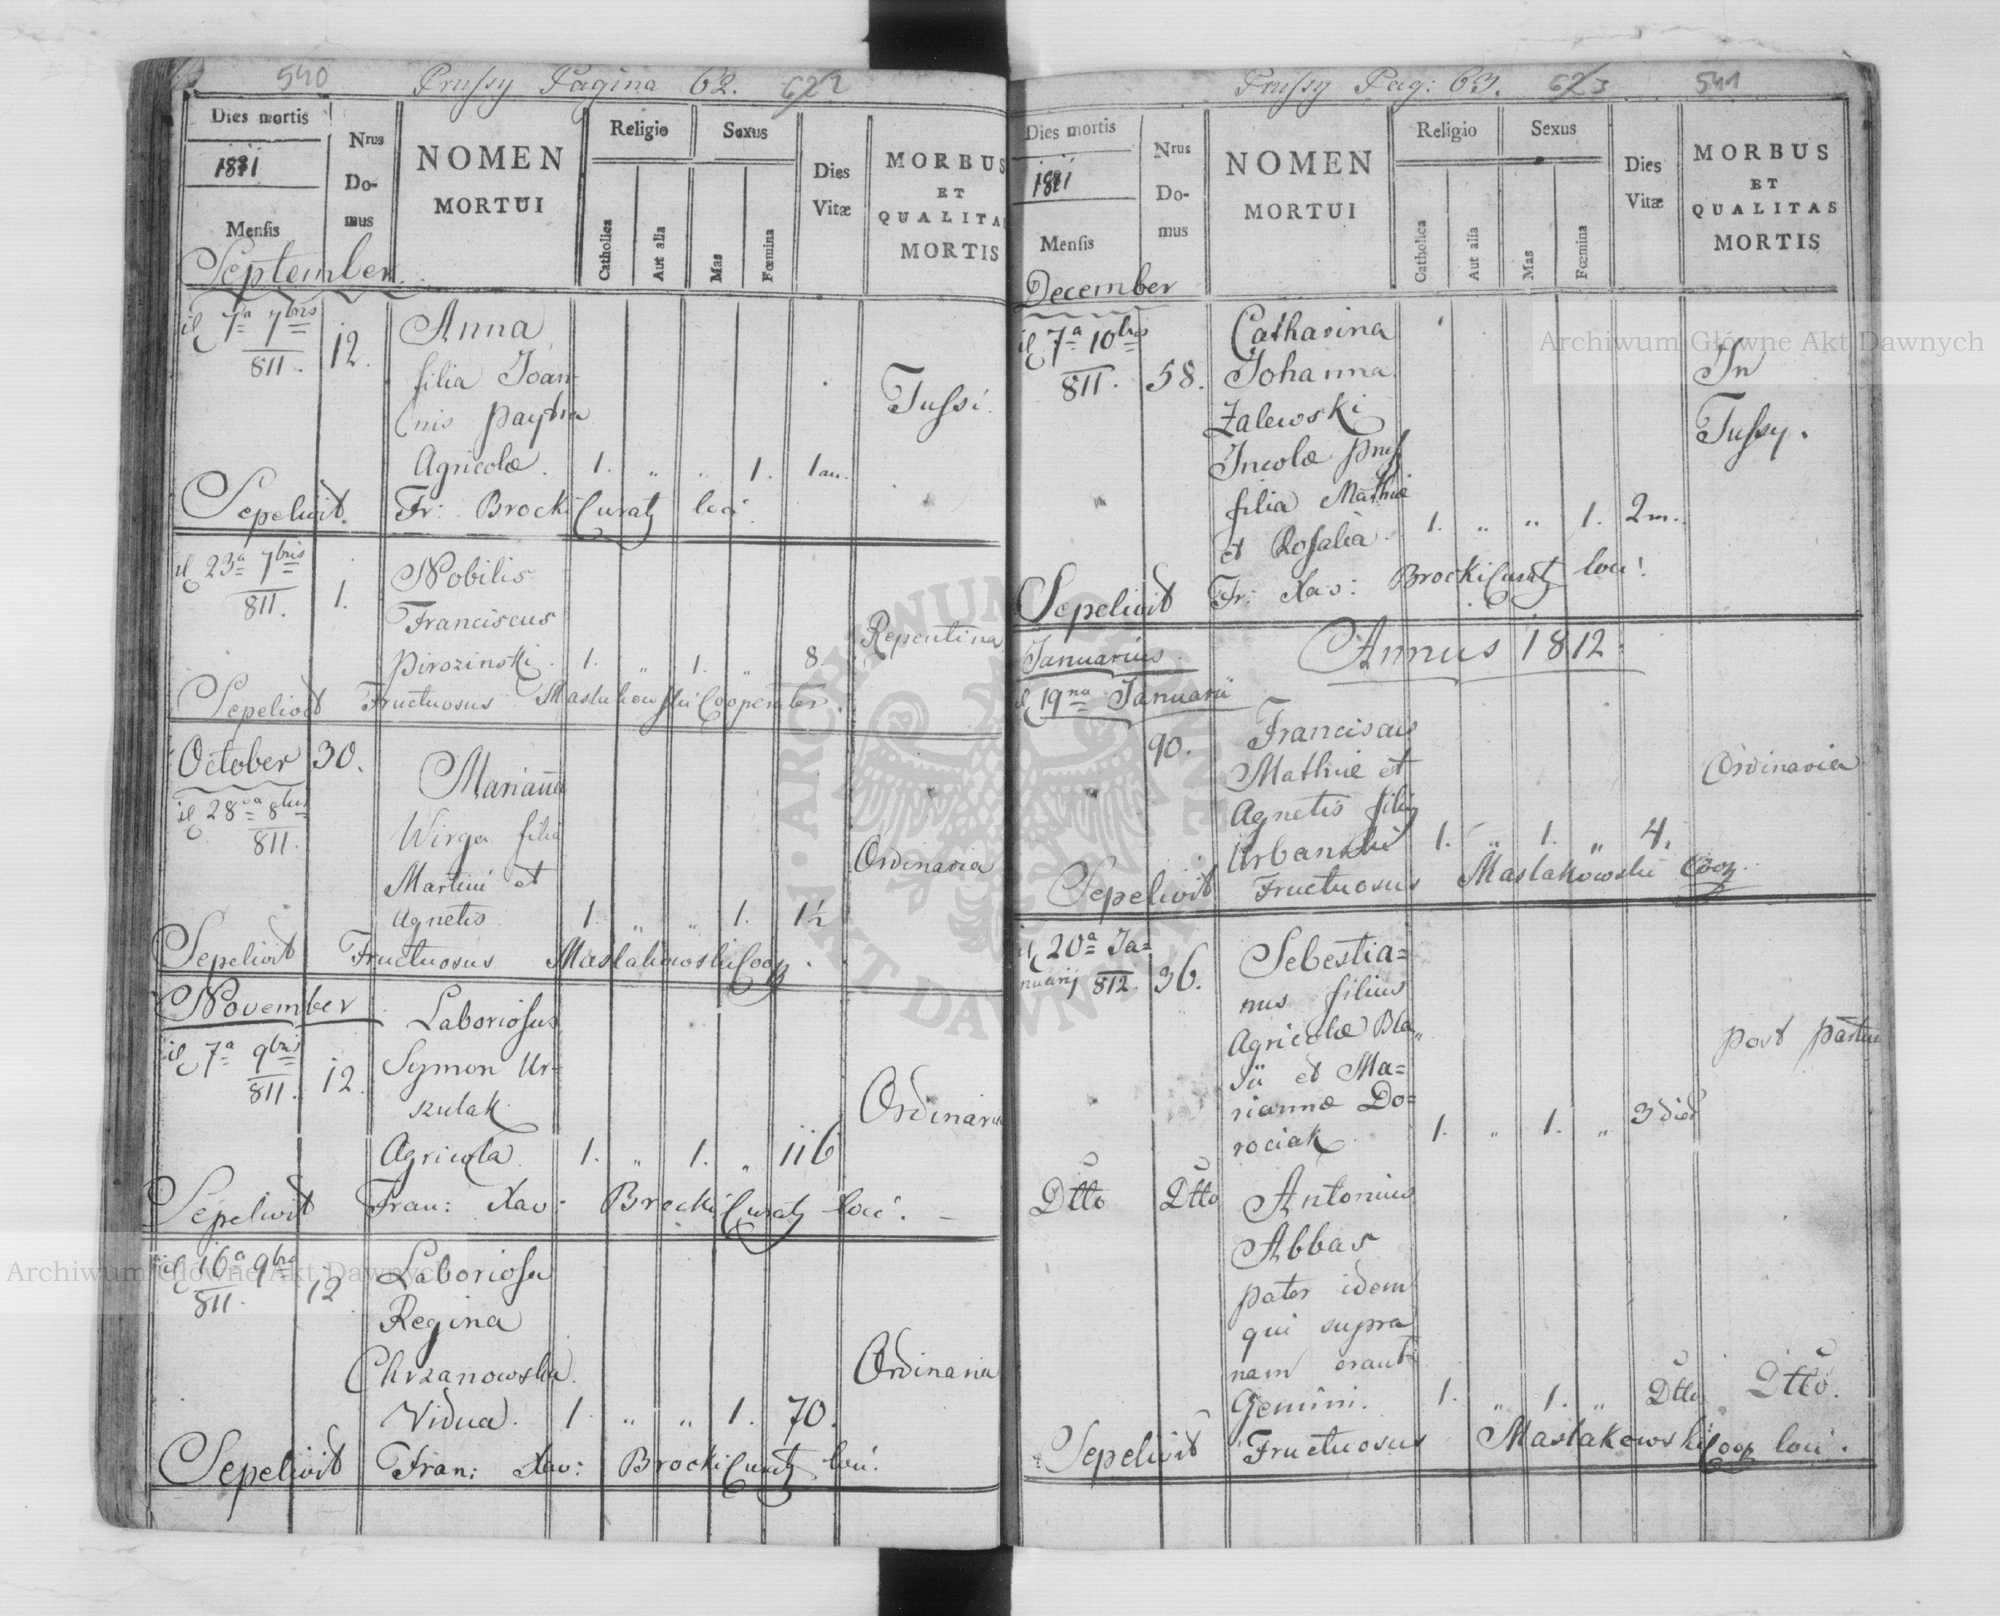 540 Prussy Pagina 62. 622
Dies mortis
1811
Mensis
Nrus Domus
NOMEN MORTUI
Religio
Catholica
Aut alia
Sexus
Mas
Fœmina
Dies Vitæ
MORBUS ET QUALITAS MORTIS
September
7a 7bris 811. 12.
Anna
filia Joan-
nis
Agricolæ. 1. „ „ 1. 1 an.
Tussi.
Sepelivit. Fr: Brocki Curatg loci.
23a 7bris 811. 1.
Nobilis
Franciscus
Pirozinski. 1. „ 1. „ 8.
Repentina
Sepelivit Fructuosus Maslakowski Cooperator.
October 30.
28va 8bris 811.
Marianna
Wirga filia
Martini et
Agnetis. 1. „ „ 1. 1½
Ordinaria
Sepelivit Fructuosus Maslakowski Coop.
November
7a 9bris 811. 12.
Laboriosus
Symon Ur-
szulak
Agricola. 1. „ 1. „ 116
Ordinaria
Sepelivit Fran: Xav: Brocki Curatg loci.
16a 9bris 811. 12
Laboriosa
Regina
Chrzanowska.
Vidua. 1 „ „ 1. 70.
Ordinaria
Sepelivit Fran: Xav: Brocki Curatg loci.
Prussy Pag: 63. 623 541
Dies mortis
1811
Mensis
Nrus Domus
NOMEN MORTUI
Religio
Catholica
Aut alia
Sexus
Mas
Fœmina
Dies Vitæ
MORBUS ET QUALITAS MORTIS
December
7a 10bris 811. 58.
Catharina
Johanna
Zalewski
Incolæ Pruss
filia Mathiæ
et Rosalia. 1. „ „ 1. 2 m.
In
Tussy.
Sepelivit Fr: Xav: Brocki Curatg loci.
Januarius. Annus 1812.
19na Januarii
90.
Franciscus
Mathiæ et
Agnetis filig
Urbanski 1. „ 1. „ 4.
Ordinaria
Sepelivit Fructuosus Maslakowski Coop.
20a Ja=
nuarij 812. 36.
Sebestia=
nus filius
Agricolæ Bla„
sii et Ma=
riannæ Do=
rociak. 1. „ 1. „ 3 dies
post partum
Dtto Dtto
Antonius
Abbas
pater idem
qui supra
nam erant
Gemini. 1. „ 1. „ Dtto Dtto.
Sepelivit Fructuosus Maslakowski Coop loci.
Archiwum Główne Akt Dawnych
Archiwum Główne Akt Dawnych
ARCHIWUM GŁÓWNE AKT DAWNYCH